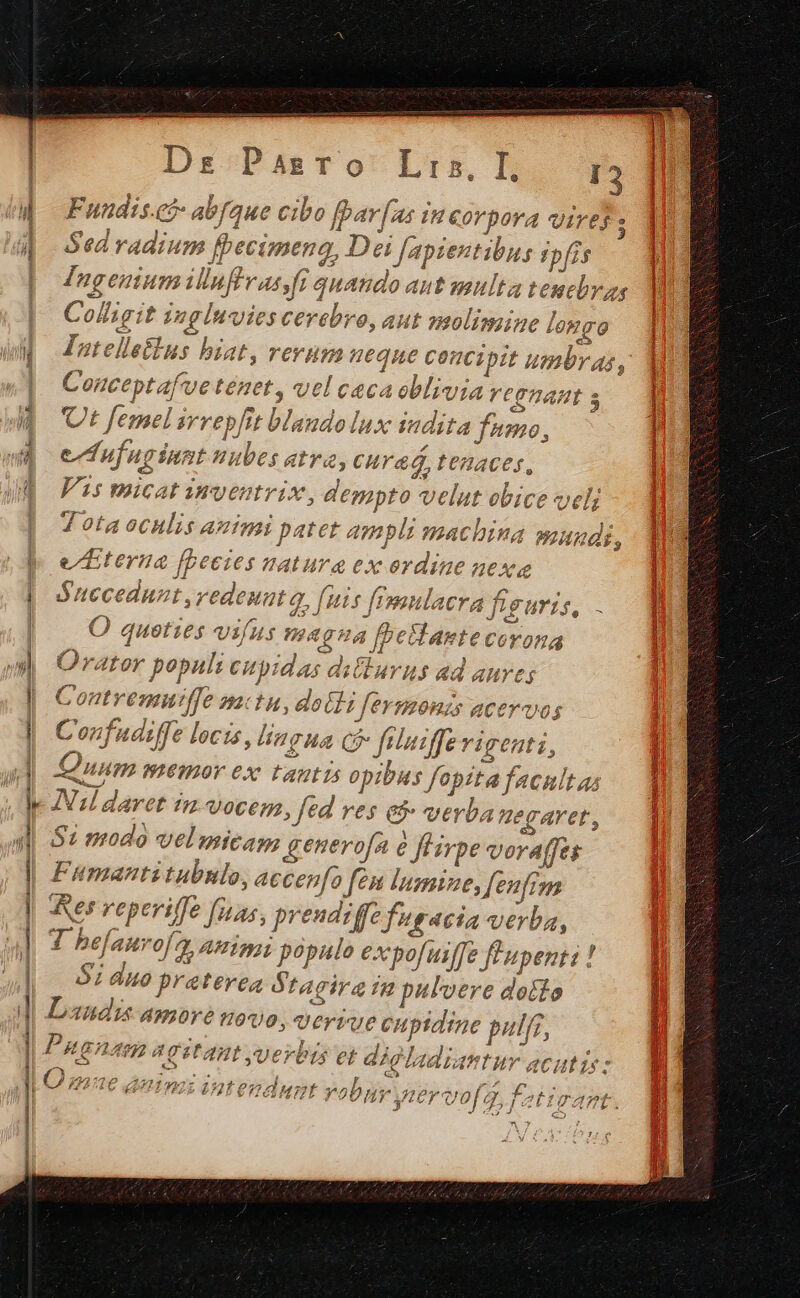 DE PAETO LIB. I. 13
Fundis.& abſque cibo ſparſas in corpora vires;
Sed radium ſpecimenq, Dei ſapientibus ipſis
Ingenium illuſtras, ſi quando aut multa tenebras
Colligit ingluvies cerebro, aut molimine longo
Intellectus hiat, rerum neque concipit umbras,
Conceptaſve tenet, vel cæca oblivia regnant;
Ut ſemel irrepſit blando lux indita fumo,
Aufugiunt nubes atræ, curæq, tenaces.
Vis micat inventrix, dempto velut obice veli
Tota oculis animi patet ampli machina mundi,
Æterna ſpecies naturæ ex ordine nexæ
Succedunt, redeunt q, ſuis ſimulacra figuris.
O quoties viſus magna ſpectante corona
Orator populi cupidas dicturus ad aures
Contremuiſſe metu, docti ſermonis acervos
Confudiſſe locis, lingua & ſiluiſſe rigenti,
Quum memor ex tantis opibus ſopita facultas
Nil daret in vocem, ſed res & verba negaret,
Si modò vel micam generoſa è ſtirpe voraſſes
Fumanti tubulo, accenſo ſeu lumine, ſenſim
Res reperiſſe ſuas, prendiſſe fugacia verba,
Theſauroſq, animi populo expoſuiſſe ſtupenti!
Si duo præterea Stagiræ in pulvere docto
Laudis amore novo, verive cupidine pulſi,
Pugnam agitant, verbis et digladiantur acutis:
Omne animi intendunt robur, nervoſq, fatigant.